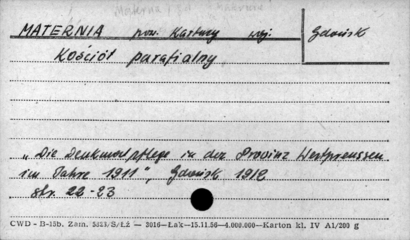 MATERNIA pow. Kartuzy woj. Gdańsk
Kościół parafialny
„Die Denkmalpflege in der Provinz Westpreussen
im Jahre 1911", Gdańsk 1912
str. 22-23
CWD - B-15b. Zam. 5521/S/Łż — 3016—Łak—15.11.56—4.000.000—Karton kl. IV A1/200 g